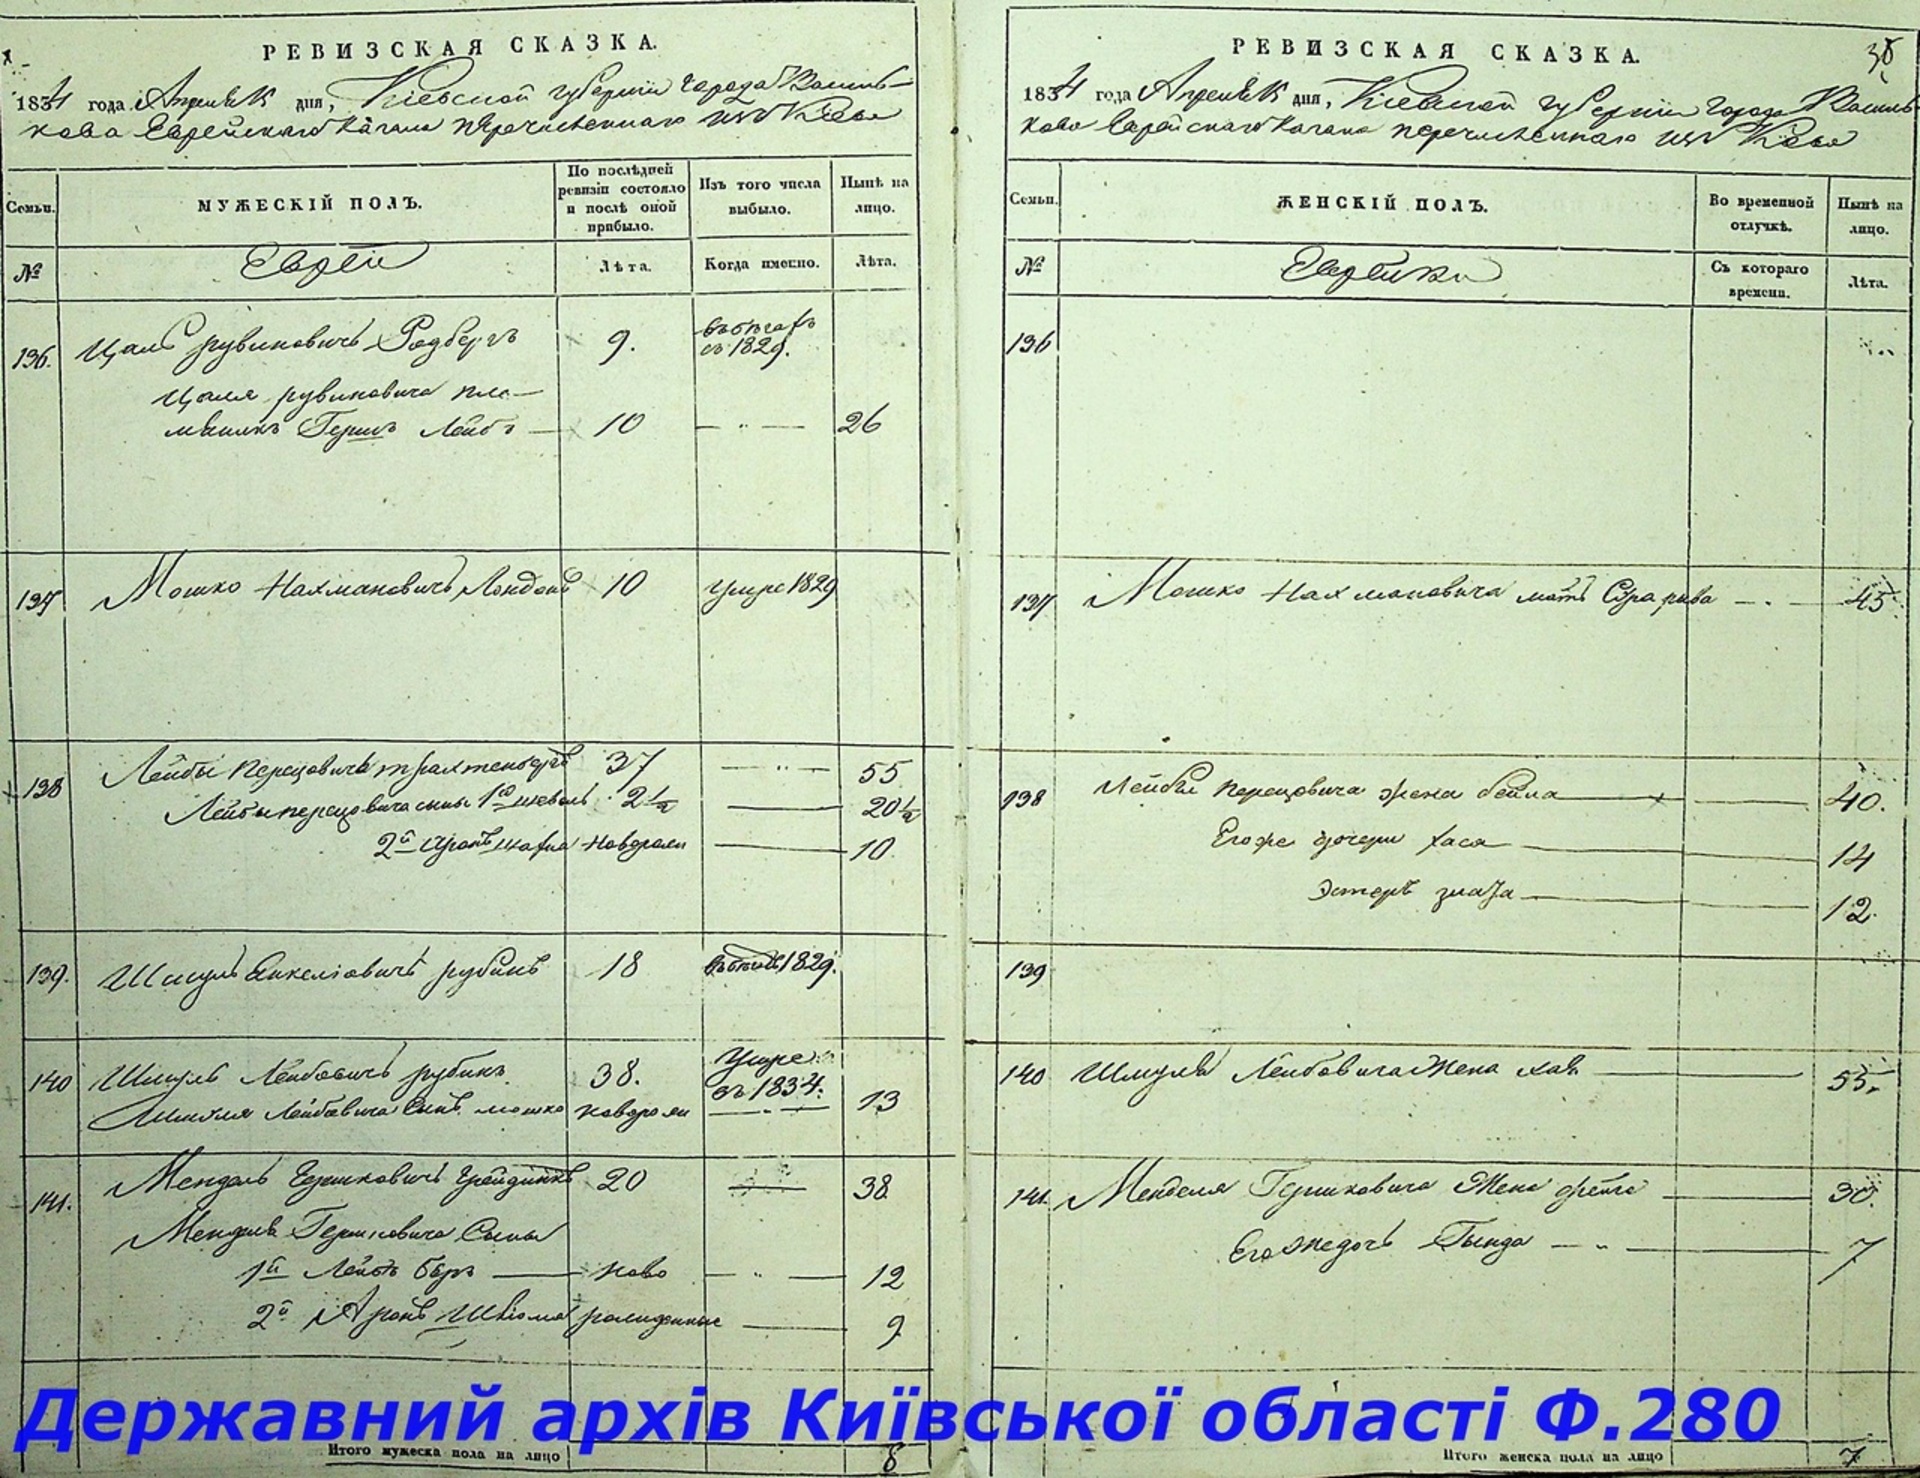 РЕВИЗСКАЯ СКАЗКА.
1834 года Апреля 15 дня, Кіевской губерніи города Василь-
кова Еврейскаго Кагала перечисленнаго изъ Кіева
Семьи.
МУЖЕСКІЙ ПОЛЪ.
По послѣдней
ревизіи состояло
и послѣ оной
прибыло.
Изъ того числа
выбыло.
Нынѣ на
лицо.
№
Евреи
Лѣта.
Когда именно.
Лѣта.
136. Цаль рувиновичъ Родбергъ 9. въ бѣгахъ
съ 1829.
Цаля рувиновича пле-
мяникъ Гершъ Лейбъ 10 26
137 Мошко Нахмановичъ Лондонъ 10 умре 1829
138 Лейбы перецовичъ трахтенбергъ 37 55
Лейбы перецовича сыны 1й шевель 2½ 20½
2й аронъ новорожден 10
139. Шмуль Янкеліовичъ рубинъ 18 1829.
140 Шмуль Лейбовичъ рубинъ 38. Умре
въ 1834.
Шмуля Лейбовича Сынъ мошко новорожден 13
141. Мендель Гершковичъ 20 38
Менделя Гершковича Сыны
1й Лейбъ беръ ново 12
2й Аронъ Шліома рожденные 9
Итого мужеска пола на лицо 8
РЕВИЗСКАЯ СКАЗКА.
38
1834 года Апреля 15 дня, Кіевской губерніи города Василь-
кова Еврейскаго Кагала перечисленнаго изъ Кіева
Семьи.
ЖЕНСКІЙ ПОЛЪ.
Во временной
отлучкѣ.
Нынѣ на
лицо.
№
Еврейки
Съ котораго
времени.
Лѣта.
136
137 Мошко Нахмановича мать Сура рива 45
138 Лейбы перецовича жена бейла 40.
Егоже дочери хася 14
Эстеръ злата 12.
139
140 Шмуля Лейбовича Жена хая 55.
141. Менделя Гершковича Жена фейга 30.
Его же дочь Гында 7
Итого женска пола на лицо 7
Державний архів Київської області Ф.280